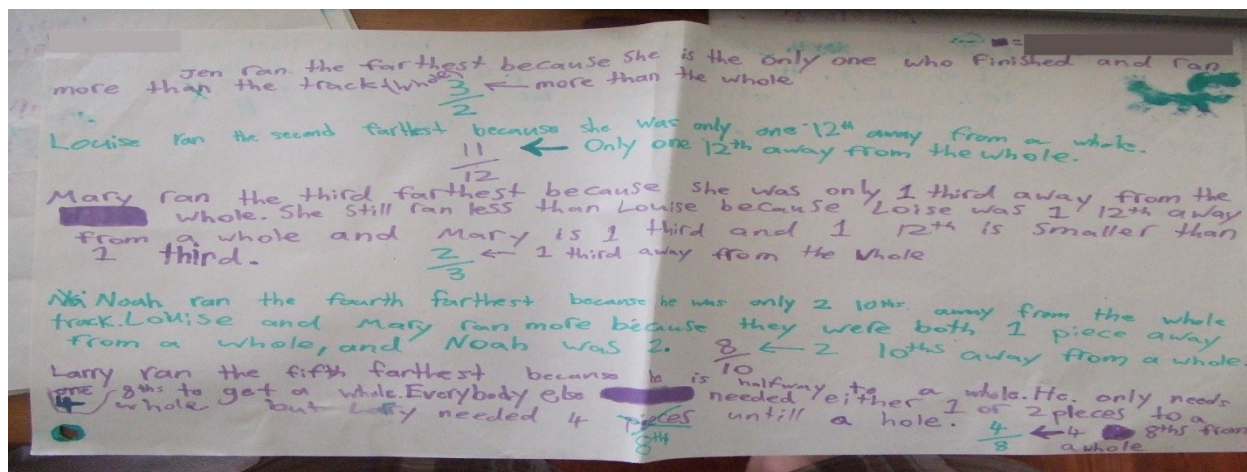 Jen ran the farthest because She is the only one who Finished and ran
more than the track(whole)
3/2 ← more than the whole
Louise ran the second farthest because she was only one 12th away from a whole.
11/12 ← Only one 12th away from the whole.
Mary ran the third farthest because she was only 1 third away from the
whole. She still ran less than Louise because Loise was 1 12th away
from a whole and Mary is 1 third and 1 12th is smaller than
1 third.
2/3 ← 1 third away from the whole
Noah ran the fourth farthest because he was only 2 10ths away from the whole
track. Louise and Mary ran more because they were both 1 piece away
from a whole, and Noah was 2.
8/10 ← 2 10ths away from a whole.
Larry ran the fifth farthest because he is halfway to a whole. He only needs
4 8ths to get a whole. Everybody else needed either 1 or 2 pieces to a
whole but Larry needed 4 pieces 8th untill a hole.
4/8 ← 4 8ths from
a whole